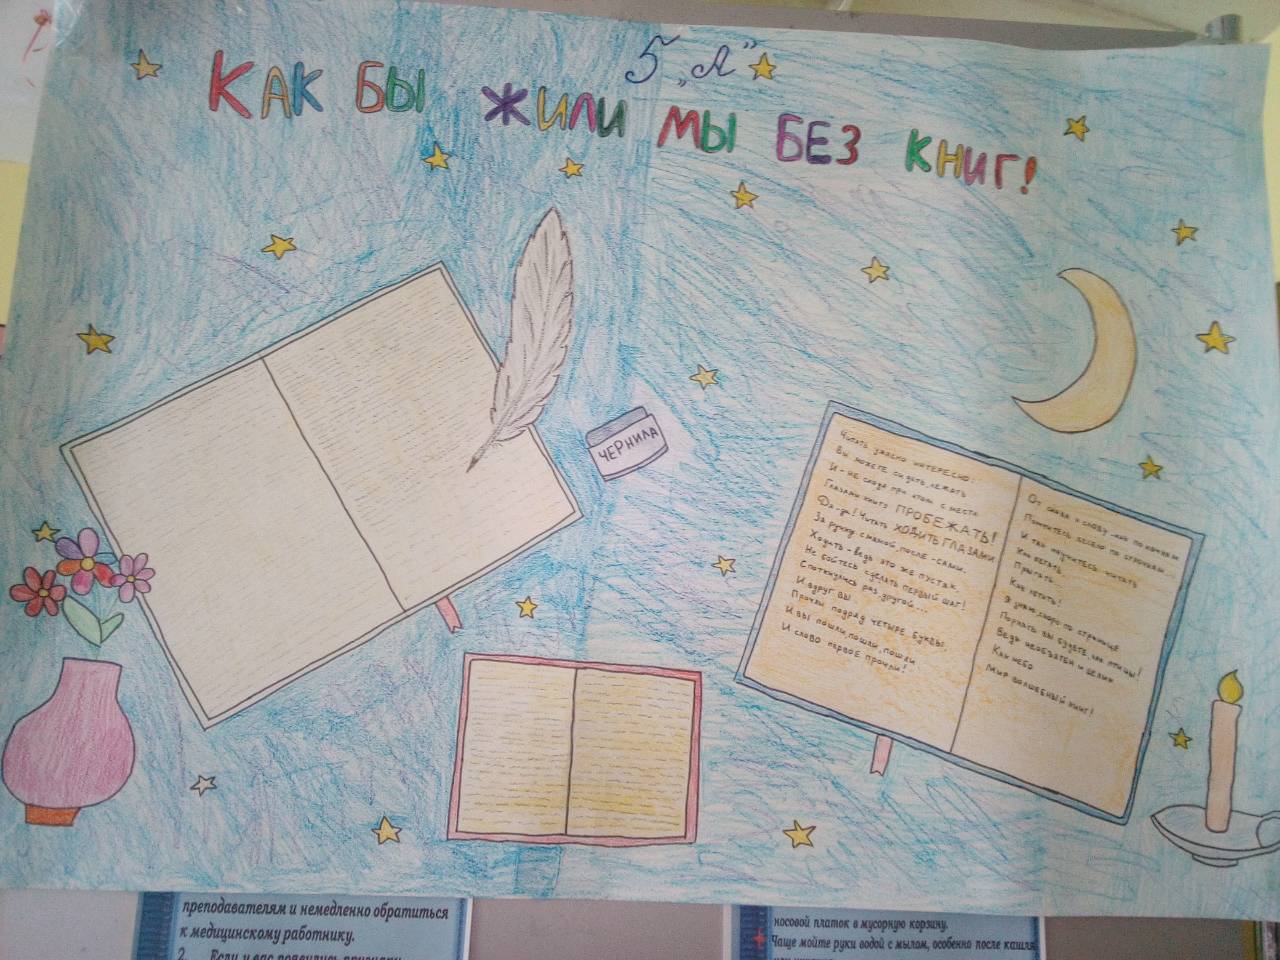 5 „А"
КАК БЫ ЖИЛИ МЫ БЕЗ КНИГ!
ЧЕРНИЛА
Читать ужасно интересно:
Вы можете сидеть, лежать
И - не сходя при этом с места
Глазами книгу ПРОБЕЖАТЬ!
Да-да! Читать ХОДИТЬ ГЛАЗАМИ
За ручку с мамой, после - сами.
Ходить - ведь это же пустяк,
Не бойтесь сделать первый шаг!
Споткнулись раз, другой...
И вдруг вы
Прочли подряд четыре буквы
И вы пошли, пошли, пошли
И слово первое прочли!
От слова к слову - как по кочкам
Помчитесь весело по строчкам...
И так научитесь читать
Как бегать...
Прыгать...
Как летать!
Я знаю, скоро по странице
Порхать вы будете, как птицы!
Ведь необъятен и велик
Как небо
Мир волшебный книг!
преподавателям и немедленно обратиться
к медицинскому работнику.
2. Если у вас появились признаки
носовой платок в мусорную корзину.
Чаще мойте руки водой с мылом, особенно после кашля